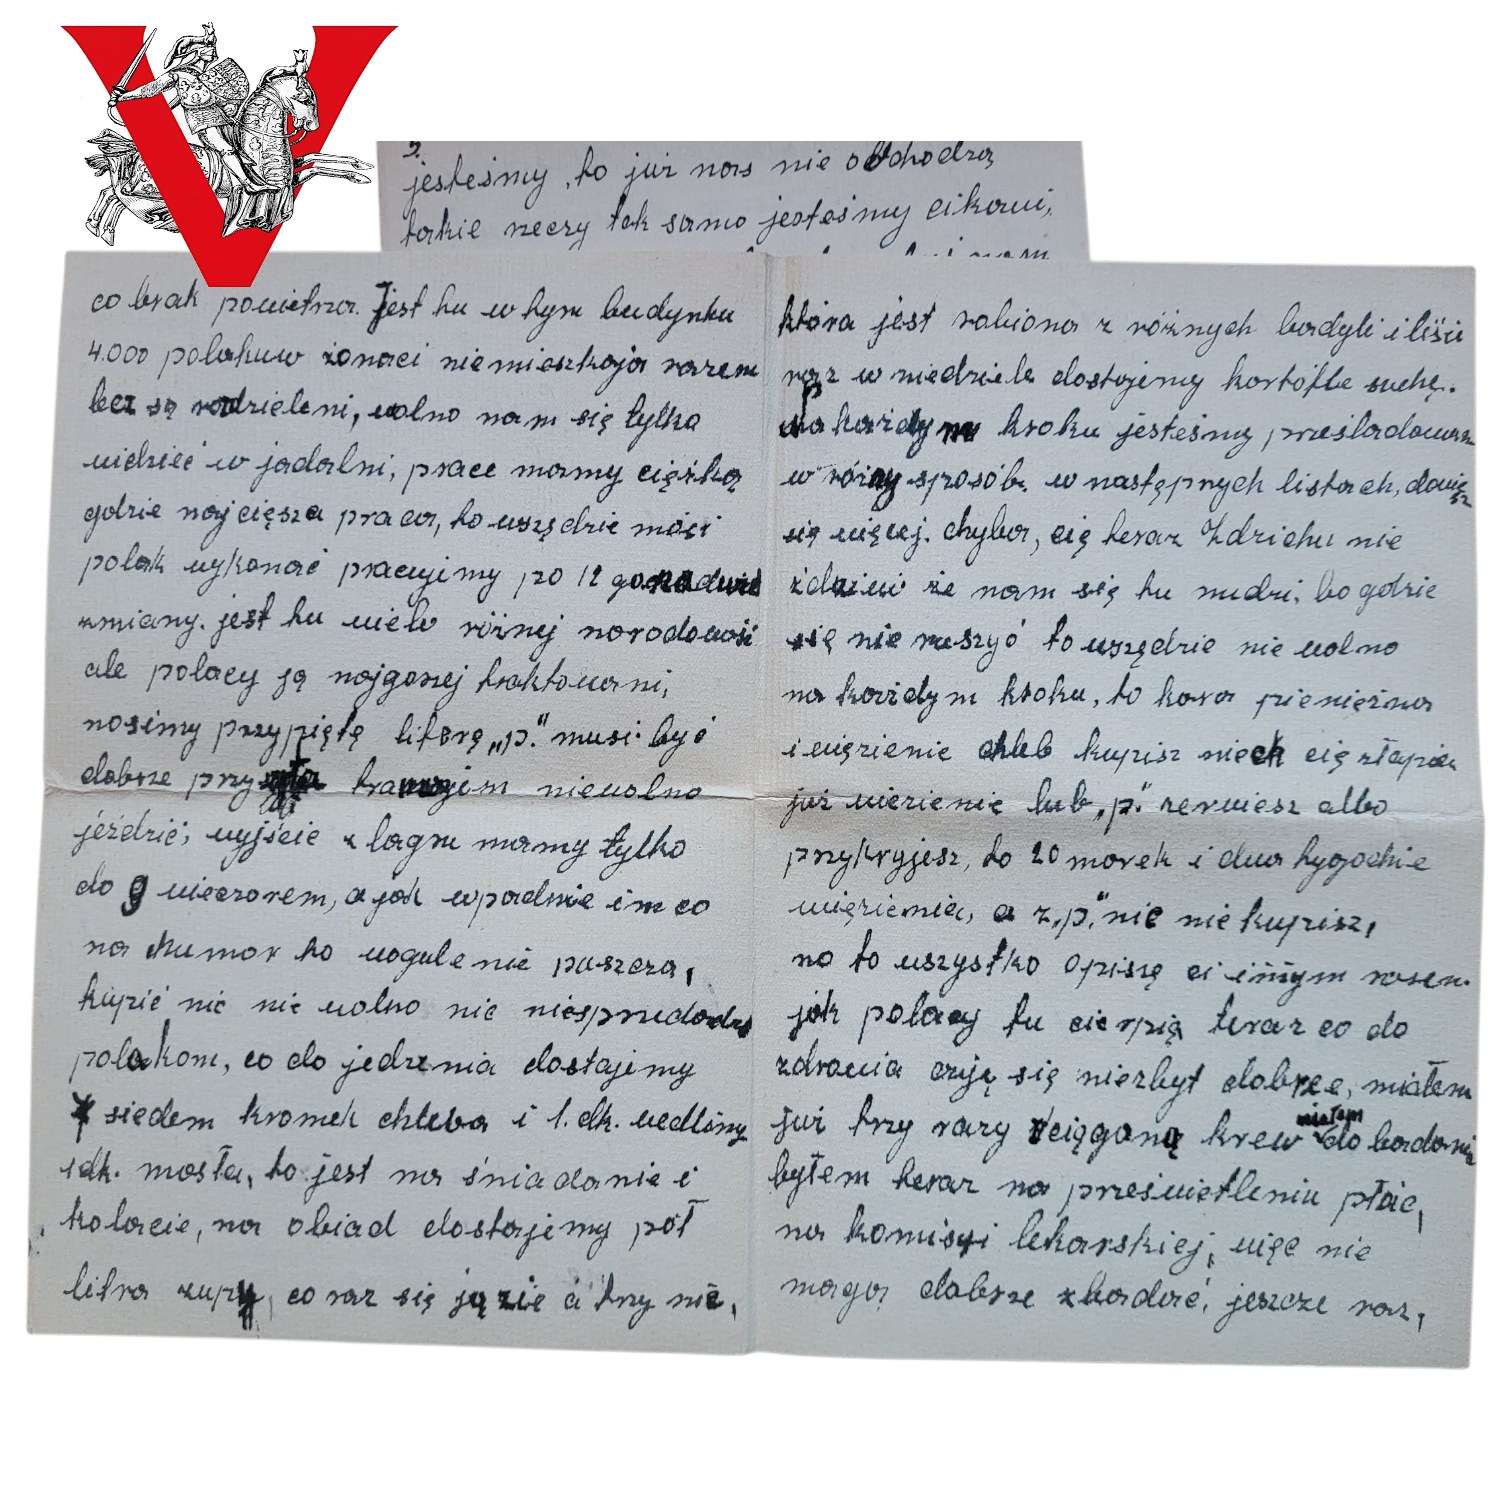 jesteśmy, to już nas nie obchodzą
takie rzeczy tak samo jesteśmy cikawi,
co brak powietrza. Jest tu w tym budynku
4.000 polakuw żonaci niemieszkają razem
bez są rodzieleni, wolno nam się tylko
widzieć w jadalni, prace mamy ciężką
gdzie najcięsza praca, to wszędzie musi
polak wykonać pracujimy po 12 go na dwie
zmiany. jest tu wielu różnej narodowośi
ale polacy są najgorzej traktowani,
nosimy przypiętę literę „p." musi być
dobrze przy tramwajem niewolno
jeździć, wyjście z lagru mamy tylko
do 9 wieczorem, a jak wpadnie im co
na chumor to wogule nie puszcza,
kupić nic nie wolno nic niesprzedadzą
polakom, co do jedzenia dostajemy
siedem kromek chleba i 1. dk. wedliny
1dk. masła, to jest na śniadanie i
kolacie, na obiad dostajemy pół
litra zupy, co raz się ją zie a trzy nie,
która jest robiona z różnych badyli i liści
raz w niedziele dostajemy kartofle suchę.
Na każdym kroku jesteśmy prześladowani
w różny sposób. w następnych listach, dowiesz
się więcej. chyba, cię teraz Zdzichu nie
zdziwi że nam się tu nudzi. bo gdzie
się nie ruszyć to wszędzie nie wolno
na każdym kroku, to kara pieniężna
i więzienie chleb kupisz niech cię złapią
już wiezienie lub „p." zerwiesz albo
przykryjesz, to 20 marek i dwa tygodnie
więzienia, a z „p." nic nie kupisz,
no to wszystko opiszę ci innym razem.
jak polacy tu cierpią teraz co do
zdrowia czuję się niezbyt dobrze, miałem
już trzy razy ściąganą krew miałem do badania
byłem teraz na prześwietleniu płuc,
na komisyi lekarskiej, więc nie
mogą dobrze zbadać, jeszcze raz,